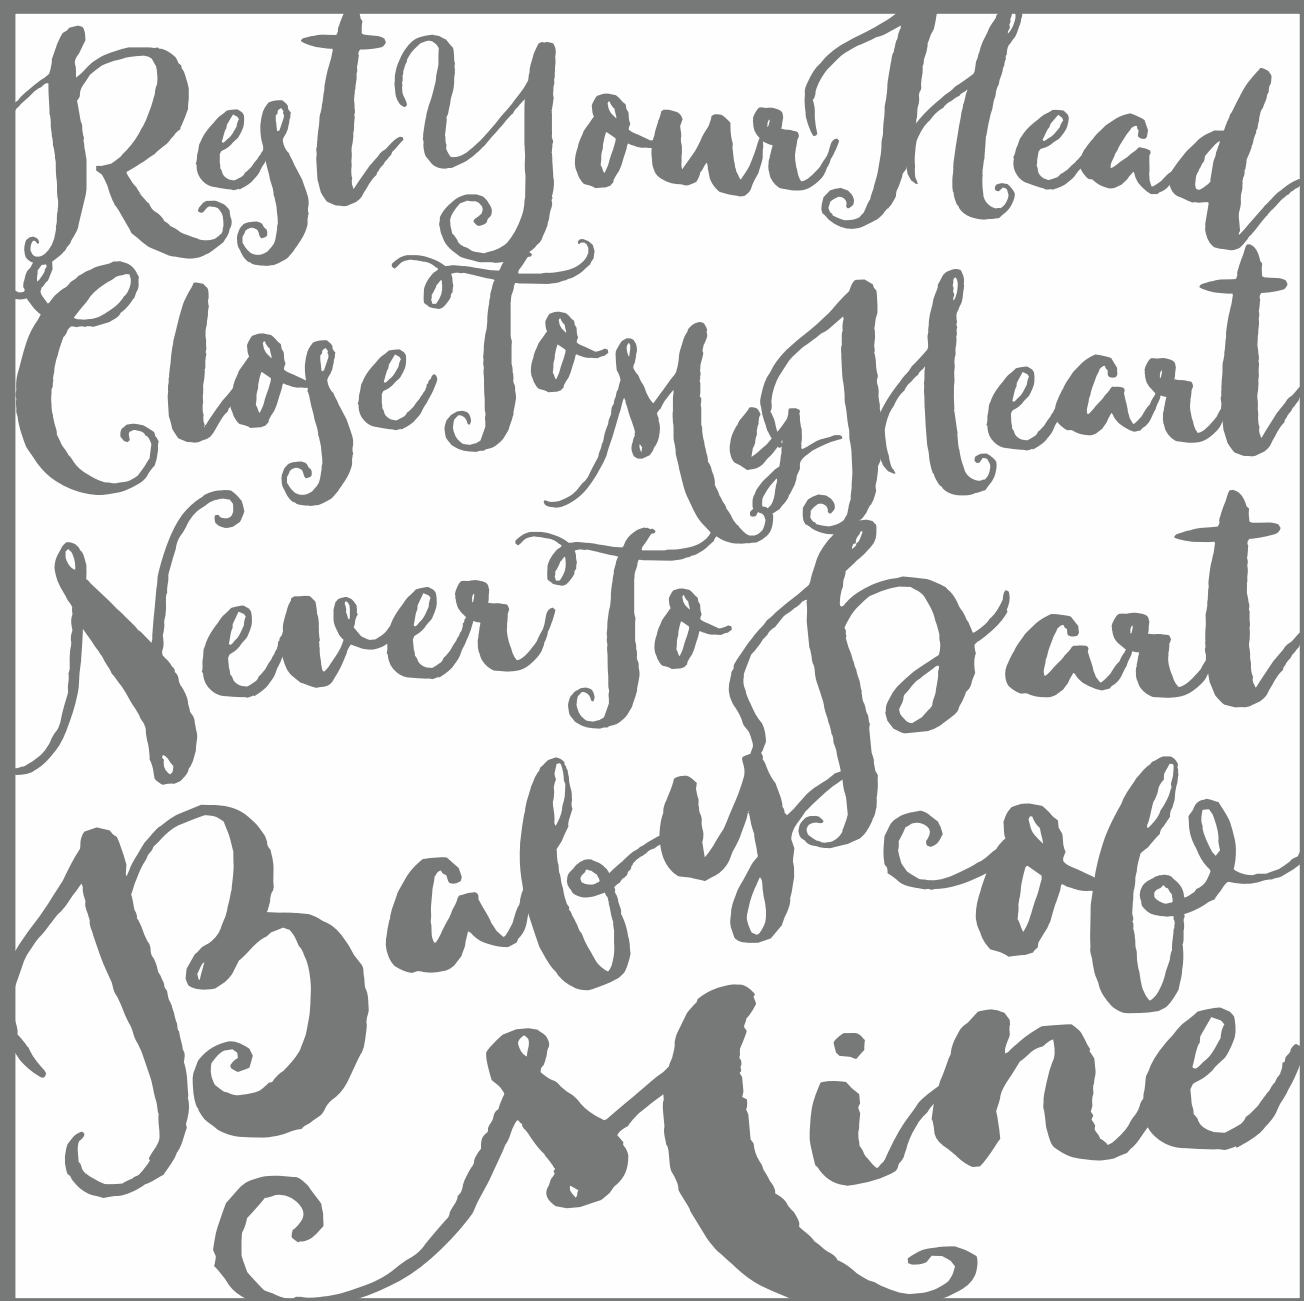 Rest Your Head
Close To My Heart
Never To Part
Baby of
Mine